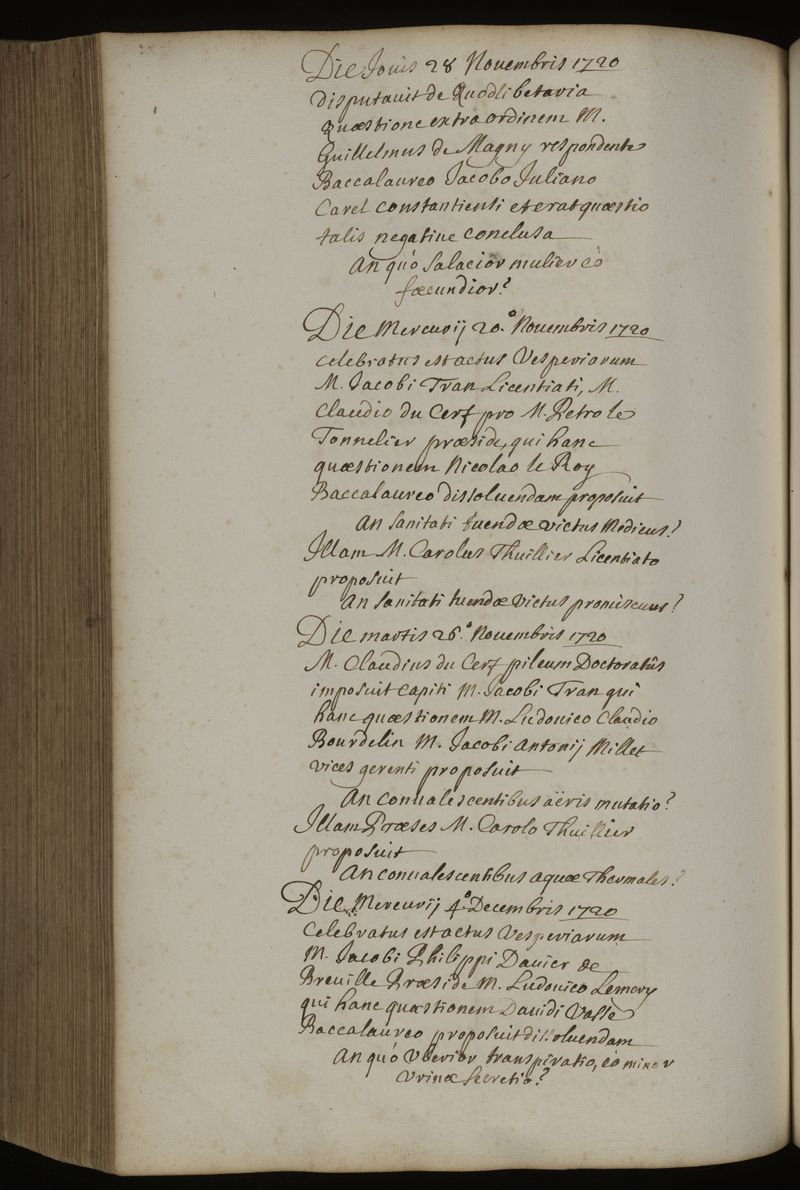 Die Jouis 28 Nouembris 1720
disputauit de Quodlibetaria
quæstione extra ordinem M.
Guillelmus de Magny respondente
Baccalaureo Jacobo Juliano
Carel constantiensi et erat quæstio
talis negatiue conclusa
An quò salacior mulier eò
fœcundior?
Die Mercurij 20.º Nouembris 1720
celebratus est actus Vesperiarum
M. Jacobi Tran Licentiati, M.
Claudio du Cerf pro M. Petro le
Tonnelier præside, qui hanc
quæstionem Nicolao le Roy
Baccalaureo dissoluendam proposuit
An sanitati tuendæ victus Medicus?
Illam M. Carolus Thuillier Licentiato
proposuit
An sanitati tuendæ Victus promiscuus?
Die martis 26.º Nouembris 1720
M. Claudius du Cerf pileum Doctoratûs
imposuit capiti M. Jacobi Tran qui
hanc quæstionem M. Ludouico Claudio
Bourdelin M. Jacobi Antonij Millet
vices gerenti proposuit
An conualescentibus aëris mutatio?
Illam Præses M. Carolo Thuillier
proposuit
An conualescentibus aquæ Thermales?
Die Mercurij 4.º Decembris 1720
Celebratus est actus Vesperiarum
M. Jacobi Philippi Dauier de
Breuille Præside M. Ludouico Lemery
qui hanc quæstionem Dauidi Vasse
Baccalaureo proposuit dissoluendam
An quò Vberior transpiratio, eò minor
Vrinæ secretio?